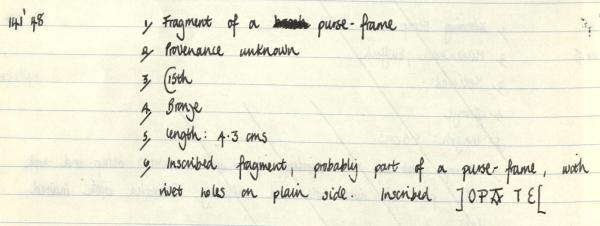 141' 48 1, Fragment of a purse-frame
2, Provenance unknown
3, C15th
4, Bronze
5, length: 4.3 cms
6, Inscribed fragment, probably part of a purse-frame, with
rivet holes on plain side. Inscribed ] T E [